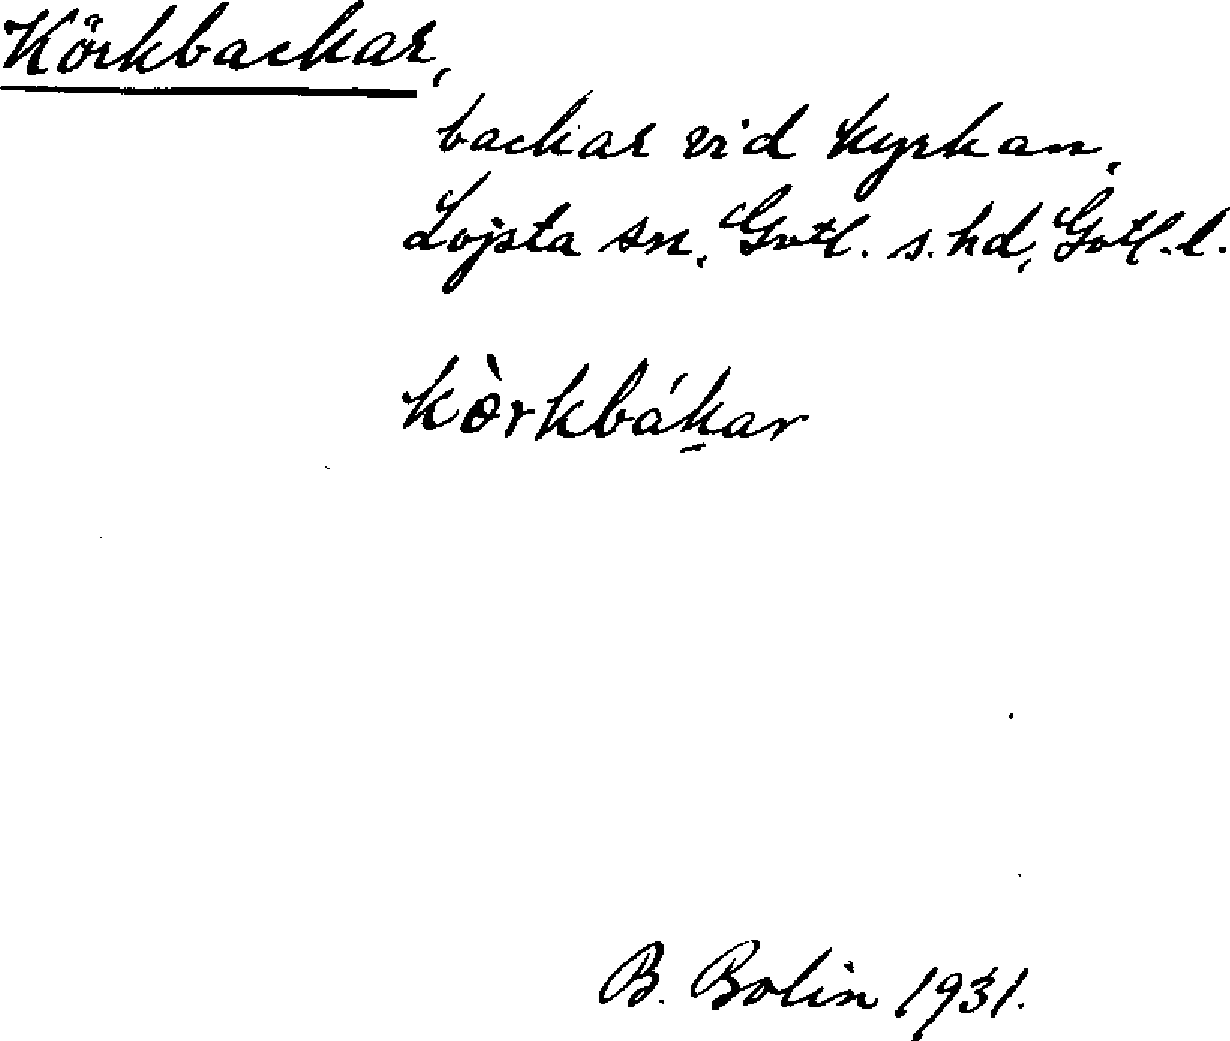 Körkbackar,
backar vid kyrkan,
Lojsta sn, Gotl. s. hd, Gotl. l.
kòrkbákar
B. Bolin 1931.